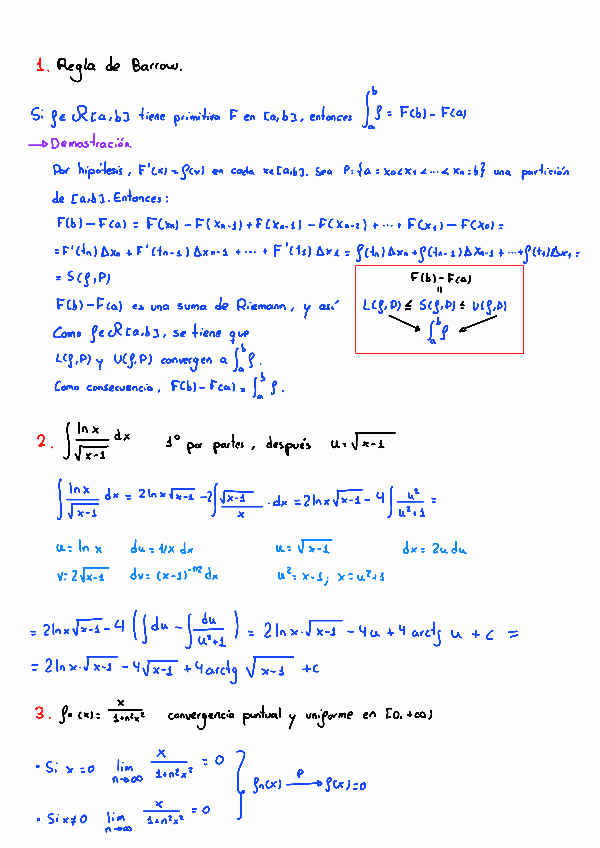 1. Regla de Barrow.
Si f∈R[a,b] tiene primitiva F en [a,b], entonces ∫_a^b f = F(b)-F(a)
→ Demostración
Por hipótesis, F'(x)=f(x) en cada x∈[a,b]. Sea P={a=x₀<x₁<...<xₙ=b} una partición
de [a,b]. Entonces:
F(b)-F(a) = F(xₙ)-F(xₙ₋₁)+F(xₙ₋₁)-F(xₙ₋₂)+...+F(x₁)-F(x₀)=
=F'(tₙ)Δxₙ+F'(tₙ₋₁)Δxₙ₋₁+...+F'(t₁)Δx₁=f(tₙ)Δxₙ+f(tₙ₋₁)Δxₙ₋₁+...+f(t₁)Δx₁=
= S(f,P)
F(b)-F(a) es una suma de Riemann, y así
Como f∈R[a,b], se tiene que
L(f,P) y U(f,P) convergen a ∫_a^b f.
Como consecuencia, F(b)-F(a)=∫_a^b f.
F(b)-F(a)
=
L(f,P) ≤ S(f,P) ≤ U(f,P)
∫_a^b f
2. ∫ ln x/√(x-1) dx 1º por partes, después u=√(x-1)
∫ ln x/√(x-1) dx = 2 ln x √(x-1) - 2∫ √(x-1)/x · dx = 2 ln x √(x-1) - 4∫ u²/(u²+1) =
u=ln x du=1/x dx u=√(x-1) dx=2u du
v=2√(x-1) dv=(x-1)^(-1/2) dx u²=x-1; x=u²+1
= 2 ln x √(x-1) - 4(∫du - ∫ du/(u²+1)) = 2 ln x·√(x-1) - 4u + 4 arctg u + c =
= 2 ln x·√(x-1) - 4√(x-1) + 4 arctg √(x-1) + c
3. fₙ(x)= x/(1+n²x²) convergencia puntual y uniforme en [0,+∞)
• Si x=0 lim_{n→∞} x/(1+n²x²) = 0
fₙ(x) →^P f(x)=0
• Si x≠0 lim_{n→∞} x/(1+n²x²) = 0